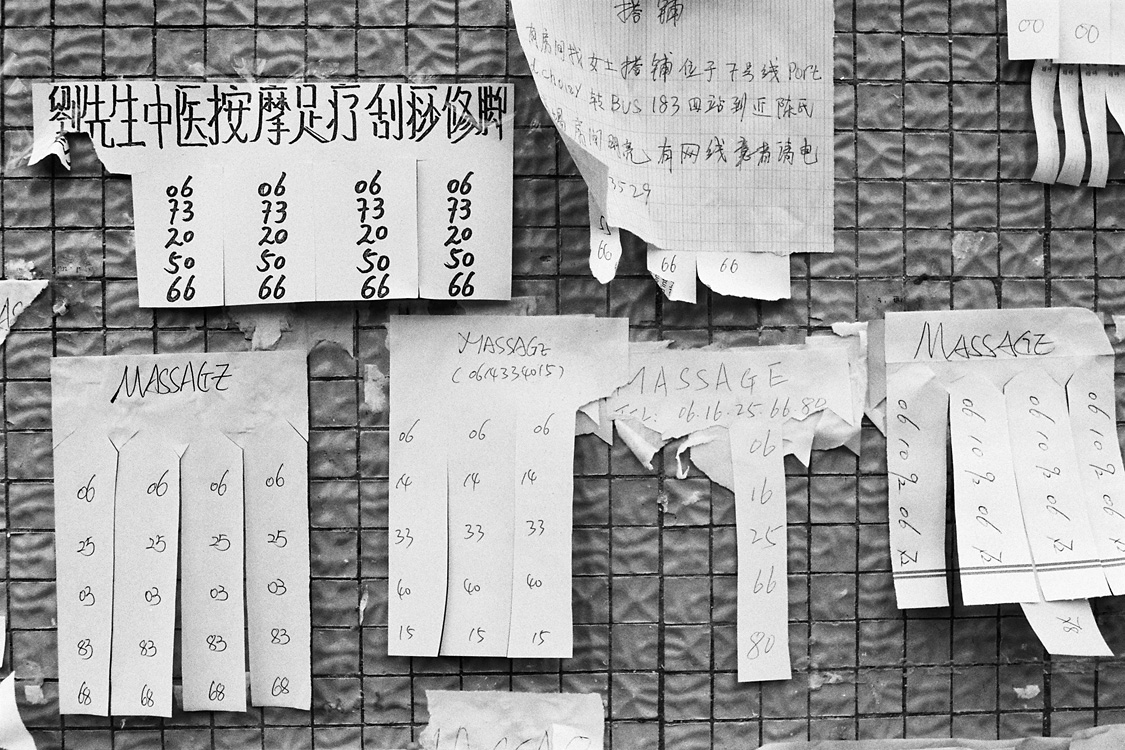 劉先生中医按摩足疗刮痧修脚
06 06 06 06
73 73 73 73
20 20 20 20
50 50 50 50
66 66 66 66
搭铺
有房间找女士搭铺位于7号线Port
d.choizy 转BUS 183 四站到近陈氏
房间明亮 有网线意者请电
3529
66 66 66
00 00
MASSAGE
06 06 06 06
25 25 25 25
03 03 03 03
83 83 83 83
68 68 68 68
MASSAGE
(0614334015)
06 06 06
14 14 14
33 33 33
40 40 40
15 15 15
MASSAGE
TEL: 06.16.25.66.80
06
16
25
66
80
MASSAGE
06 10 92 06 78
06 10 92 06 78
06 10 92 06 78
06 10 92 06
78
MASSAG